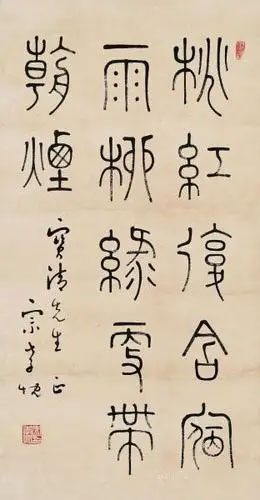 桃紅復含宿
雨柳綠更帶
朝煙
寶清先生正
宗孝忱